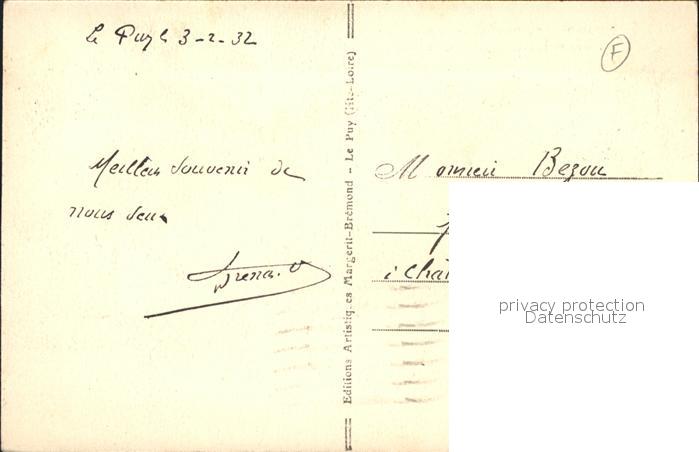 Le Puy le 3-2-32
F
Meilleur souvenir de
nous deux
Monsieur Bezou
à Châ
Editions Artistiques Margerit-Brémond - Le Puy (Hte-Loire)
privacy protection
Datenschutz